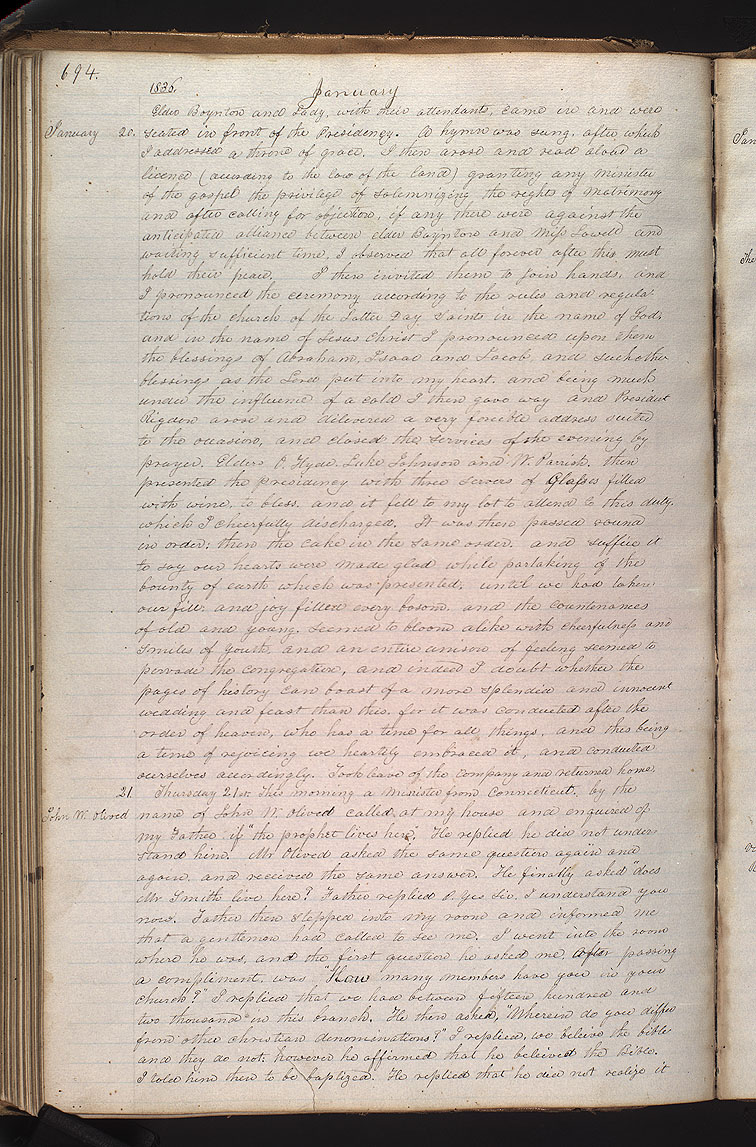 694.
1836. January
Elder Boynton and Lady, with their attendants, came in and were
January 20. seated in front of the Presidency. A hymn was sung, after which
I addressed a throne of grace. I then arose and read aloud a
licence (according to the law of the land) granting any minister
of the gospel the privilege of solemnizing the rights of matrimony
and after calling for objection, if any there were against the
anticipated alliance between elder Boynton and Miss Lowell and
waiting sufficient time, I observed that all forever after this must
hold their peace. I then invited them to join hands, and
I pronounced the ceremony according to the rules and regula-
tions of the church of the Latter Day Saints in the name of God,
and in the name of Jesus Christ I pronounced upon them
the blessings of Abraham, Isaac and Jacob, and such other
blessings as the Lord put into my heart, and being much
under the influence of a cold I then gave way and President
Rigdon arose and delivered a very forcible address suited
to the occasion, and closed the services of the evening by
prayer. Elders O. Hyde, Luke Johnson and W. Parrish, then
presented the presidency with three servers of Glasses filled
with wine, to bless, and it fell to my lot to attend to this duty,
which I cheerfully discharged. It was then passed round
in order; then the cake in the same order. and suffice it
to say our hearts were made glad while partaking of the
bounty of earth which was presented, until we had taken
our fill; and joy filled every bosom, and the countenances
of old and young, seemed to bloom alike with cheerfulness and
smiles of youth, and an entire unison of feeling seemed to
pervade the congregation, and indeed I doubt whether the
pages of history can boast of a more splendid and innocent
wedding and feast than this, for it was conducted after the
order of heaven, who has a time for all things, and this being
a time of rejoicing we heartily embraced it, and conducted
ourselves accordingly. Took leave of the company and returned home.
21 Thursday 21st. This morning a Minister from Connecticut, by the
John W. Olived name of John W. Olived called at my house and enquired of
my Father "if the prophet lives here," He replied he did not under-
stand him. Mr Olived asked the same question again and
again, and recieved the same answer. He finally asked "does
Mr Smith live here? Father replied O. yes Sir, I understand you
now. Father then stepped into my room and informed me
that a gentleman had called to see me. I went into the room
where he was, and the first question he asked me, after passing
a compliment, was "How many members have you in your
church?" I replied that we had between fifteen hundred and
two thousand in this branch. He then asked, "Wherein do you differ
from other christian denominations?" I replied, we beleive the bible
and they do not, however he affirmed that he believed the Bible.
I told him then to be baptized. He replied that he did not realize it